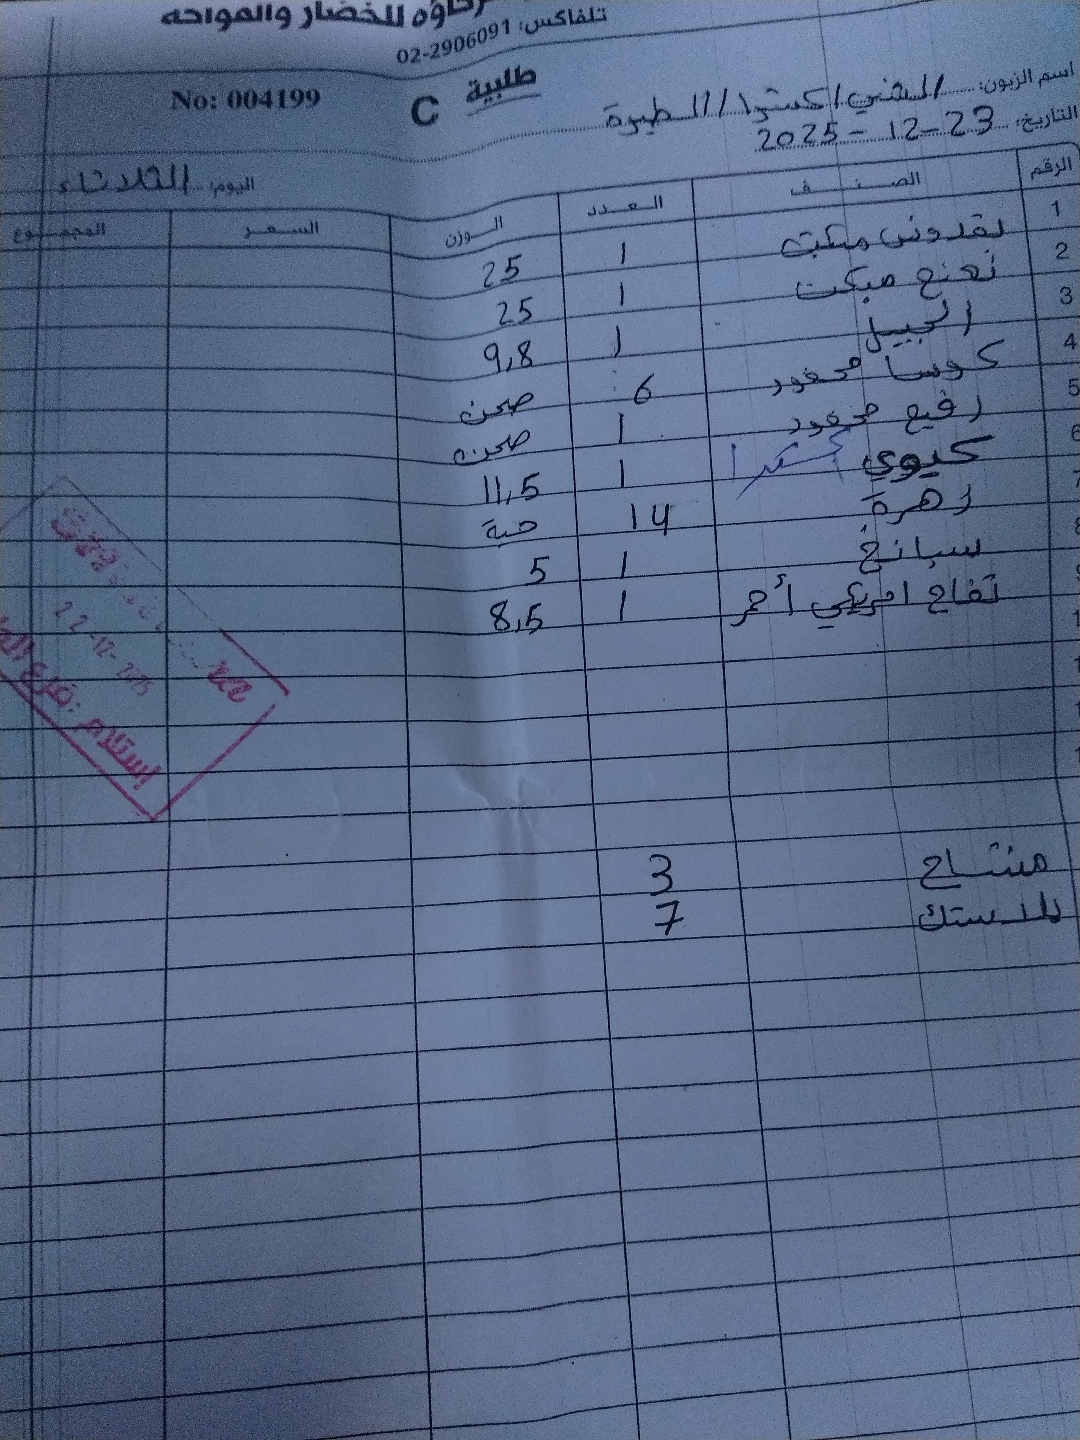 للخضار والفواكه
تلفاكس: 02-2906091
طلبية C No: 004199
اسم الزبون: الشني اكسترا / الطيرة
التاريخ: 23-12-2025
اليوم: الثلاثاء
الرقم الصنف العدد الوزن السعر المجموع
1 بقدونس مبكت 1 25
2 نعنع مبكت 1 25
3 1 9,8
4 كوسا محفور 6 صحن
5 رفيع محفور 1 صحن
6 كيوي اكسترا 1 11,5
زهرة 14 حبة
8 سبانخ 1 5
تفاح امريكي أحمر 1 8,5
مشتاح 3
بلاستك 7
22-12-2025
استلام: فرع